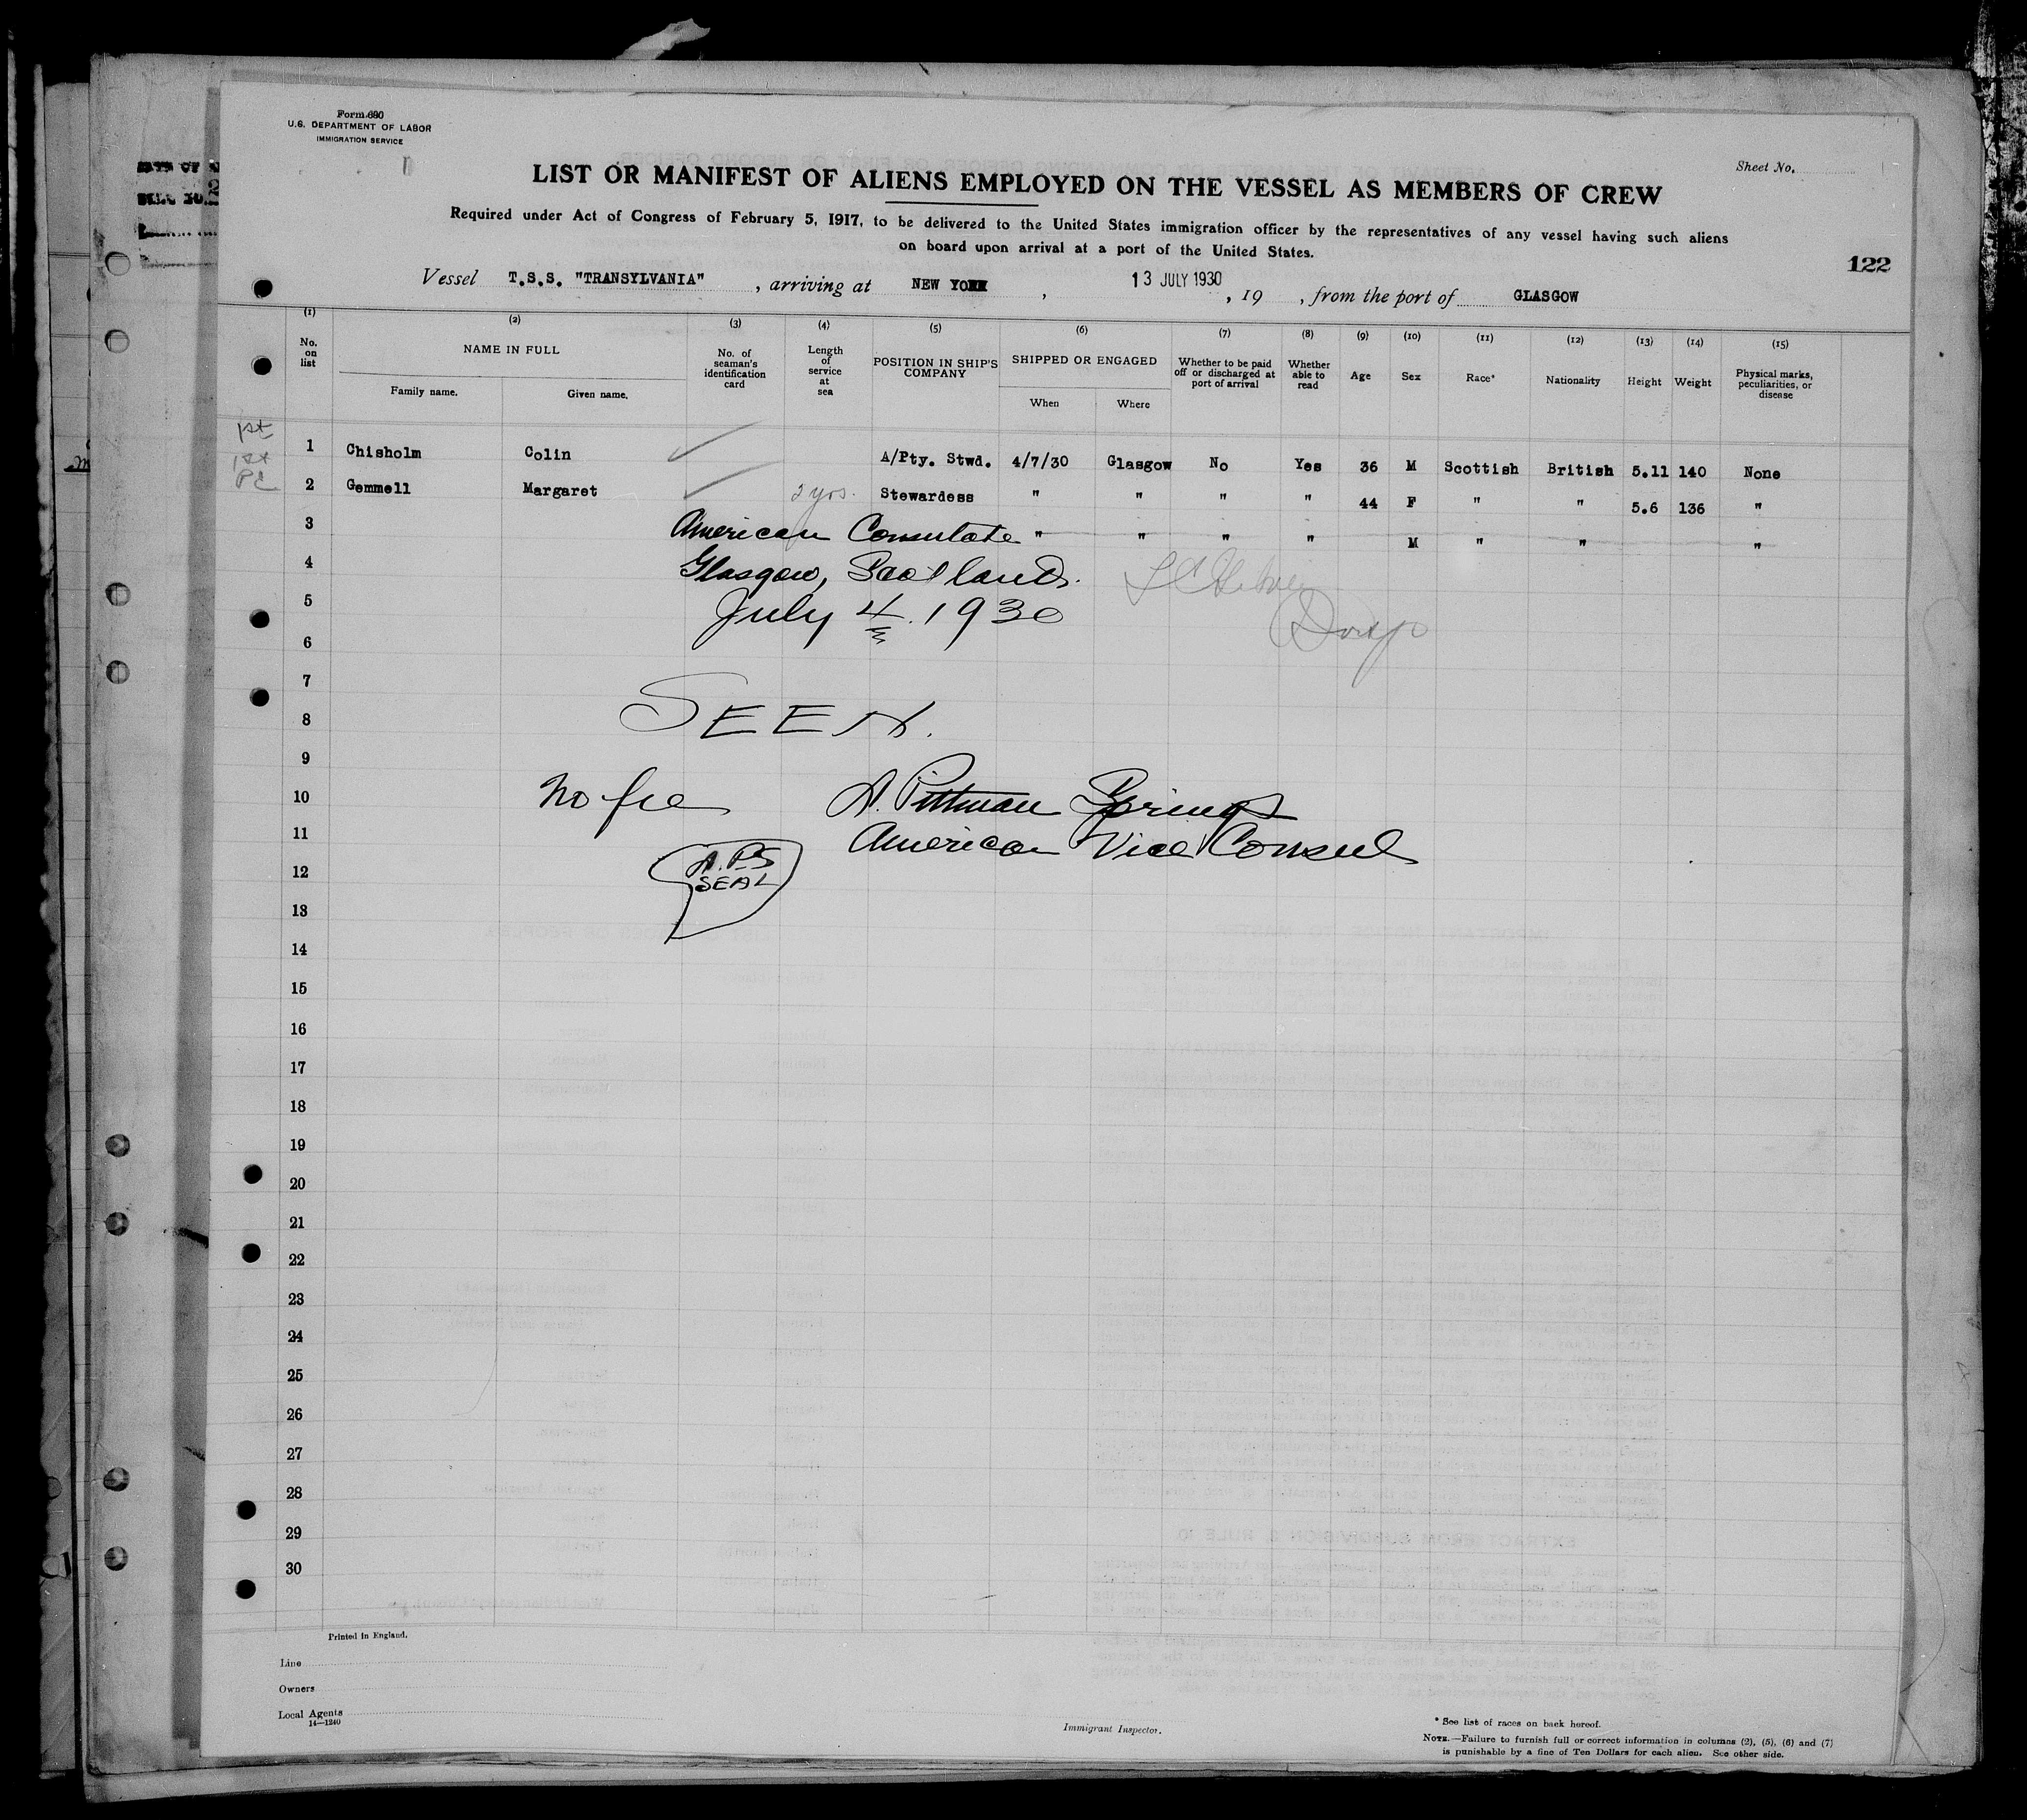 Form 680
U.S. DEPARTMENT OF LABOR
IMMIGRATION SERVICE
Sheet No.
LIST OR MANIFEST OF ALIENS EMPLOYED ON THE VESSEL AS MEMBERS OF CREW
Required under Act of Congress of February 5, 1917, to be delivered to the United States immigration officer by the representatives of any vessel having such aliens
on board upon arrival at a port of the United States.
122
Vessel T.S.S. "TRANSYLVANIA" , arriving at NEW YORK , 13 JULY 1930 , 19 , from the port of GLASGOW
(1) (2) (3) (4) (5) (6) (7) (8) (9) (10) (11) (12) (13) (14) (15)
No. on list NAME IN FULL Family name. Given name. No. of seaman's identification card Length of service at sea POSITION IN SHIP'S COMPANY SHIPPED OR ENGAGED When Where Whether to be paid off or discharged at port of arrival Whether able to read Age Sex Race* Nationality Height Weight Physical marks, peculiarities, or disease
1st
1 Chisholm Colin A/Pty. Stwd. 4/7/30 Glasgow No Yes 36 M Scottish British 5.11 140 None
1st
2 Gemmell Margaret 2 yrs. Stewardess " " " " 44 F " " 5.6 136 "
3 American Consulate " " " " M " " "
4 Glasgow, Scotland.
5 July 4. 1930
6
7
8 SEEN.
9
10 No fee A. Pittman Springs
11 American Vice Consul
12 A.P.S SEAL
13
14
15
16
17
18
19
20
21
22
23
24
25
26
27
28
29
30
Printed in England.
Line
Owners
Local Agents
14—1240
Immigrant Inspector.
* See list of races on back hereof.
NOTE.—Failure to furnish full or correct information in columns (2), (5), (6) and (7)
is punishable by a fine of Ten Dollars for each alien. See other side.